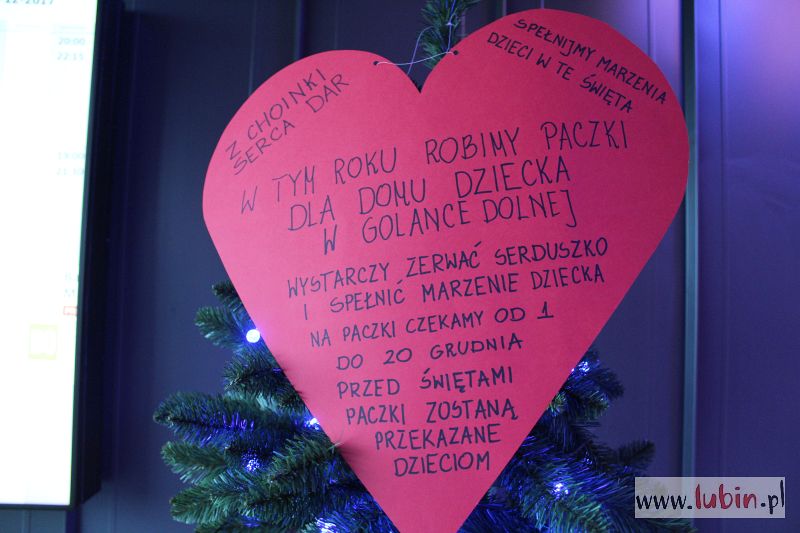 12-2017
20:00
Z CHOINKI
SERCA DAR
SPEŁNIJMY MARZENIA
DZIECI W TE ŚWIĘTA
W TYM ROKU ROBIMY PACZKI
DLA DOMU DZIECKA
W GOLANCE DOLNEJ
WYSTARCZY ZERWAĆ SERDUSZKO
I SPEŁNIĆ MARZENIE DZIECKA
NA PACZKI CZEKAMY OD 1
DO 20 GRUDNIA
PRZED ŚWIĘTAMI
PACZKI ZOSTANĄ
PRZEKAZANE
DZIECIOM
www.lubin.pl